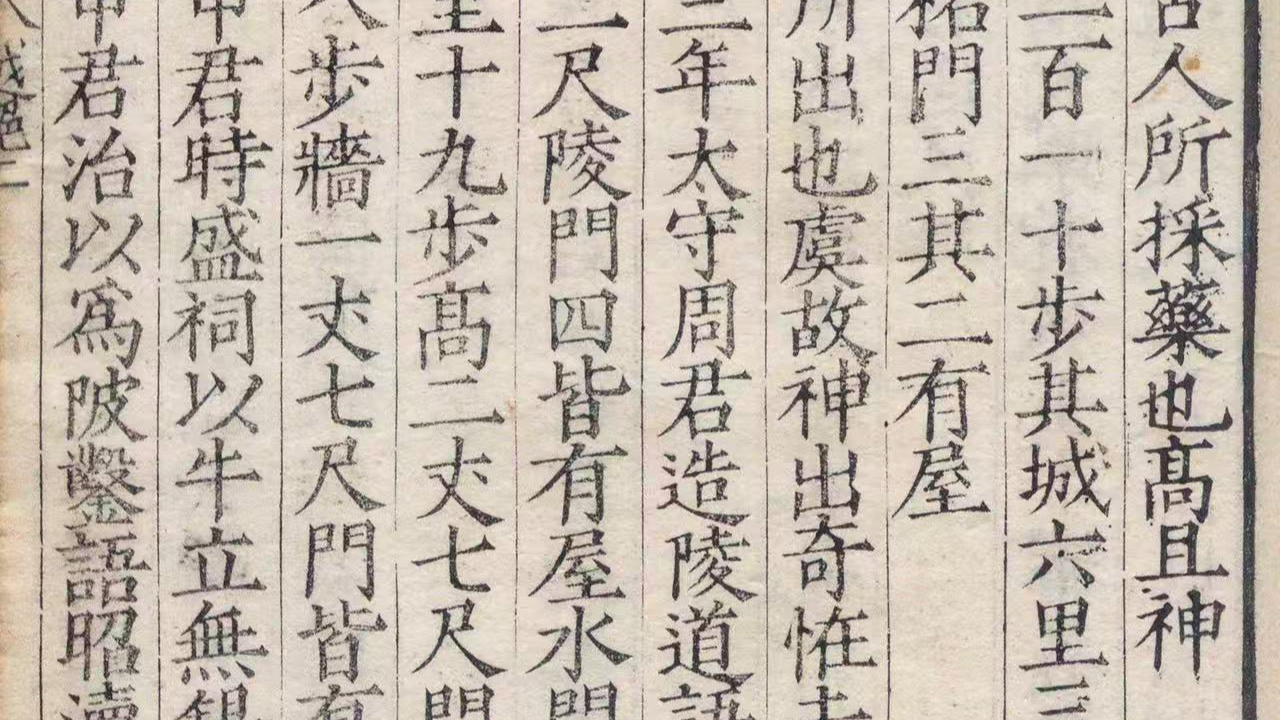 古人所採藥也高且神
二百一十步其城六里三
祏門三其二有屋
所出也虞故神出奇恠去
三年太守周君造陵道語
二尺陵門四皆有屋水門
至十九步高二丈七尺門
八步牆一丈七尺門皆有
申君時盛祠以牛立無錫
申君治以為陂鑿語昭瀆
越絕二